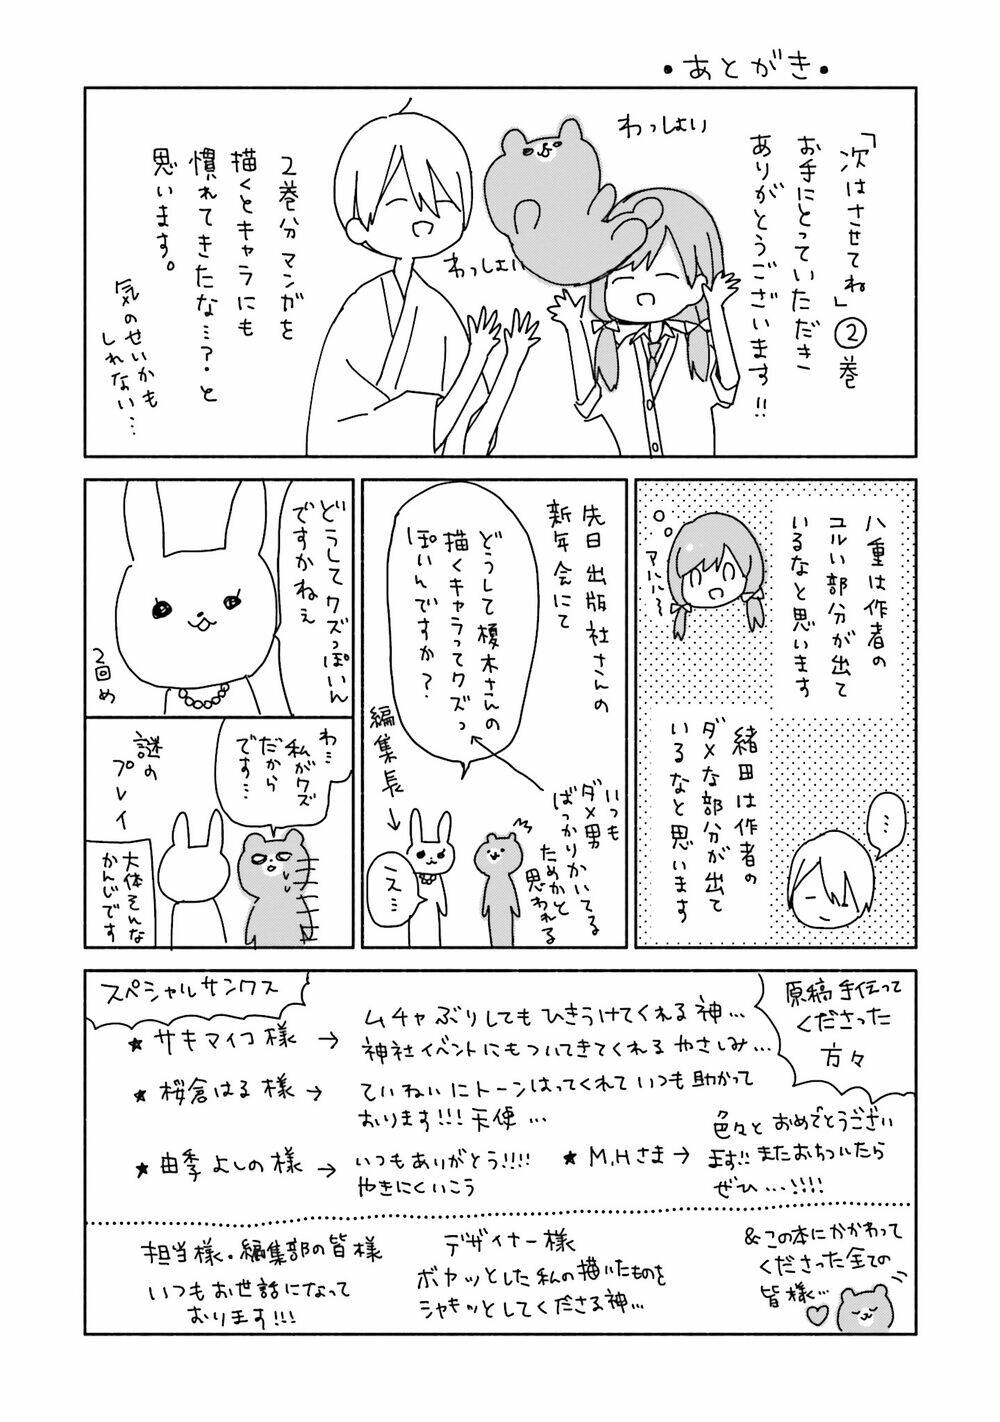 ・あとがき・
「次はさせてね」②巻
お手にとっていただき
ありがとうございます!!
わっしょい
わっしょい
2巻分マンガを
描くとキャラにも
慣れてきたな…?と
思います。
気のせいかも
しれない…
八重は作者の
ユルい部分が出て
いるなと思います
アハハ〜
緒田は作者の
ダメな部分が出て
いるなと思います
…
先日出版社さんの
新年会にて
どうして榎木さんの
描くキャラってクズっ
ぽいんですか?
いつも
ダメ男
ばっかりかいてる
ためかと
思われる
編集長→
ススス…
どうしてクズっぽいん
ですかねぇ
2回め
わ…
私がクズ
だから
です…
謎の
プレイ
大体そんな
かんじです
スペシャルサンクス
原稿手伝って
くださった
方々
★サキマイコ様→
ムチャぶりしてもひきうけてくれる神…
神社イベントにもついてきてくれるやさしみ…
★桜倉はる様→
ていねいにトーンはってくれていつも助かって
おります!!!天使…
★由季よしの様→
いつもありがとう!!!!
やきにくいこう
★M.Hさま→
色々とおめでとうござい
ます!!またおちついたら
ぜひ…!!!!
担当様・編集部の皆様
いつもお世話になって
おります!!!
デザイナー様
ボヤッとした私の描いたものを
シャキッとしてくださる神…
&この本にかかわって
くださった全ての
皆様…